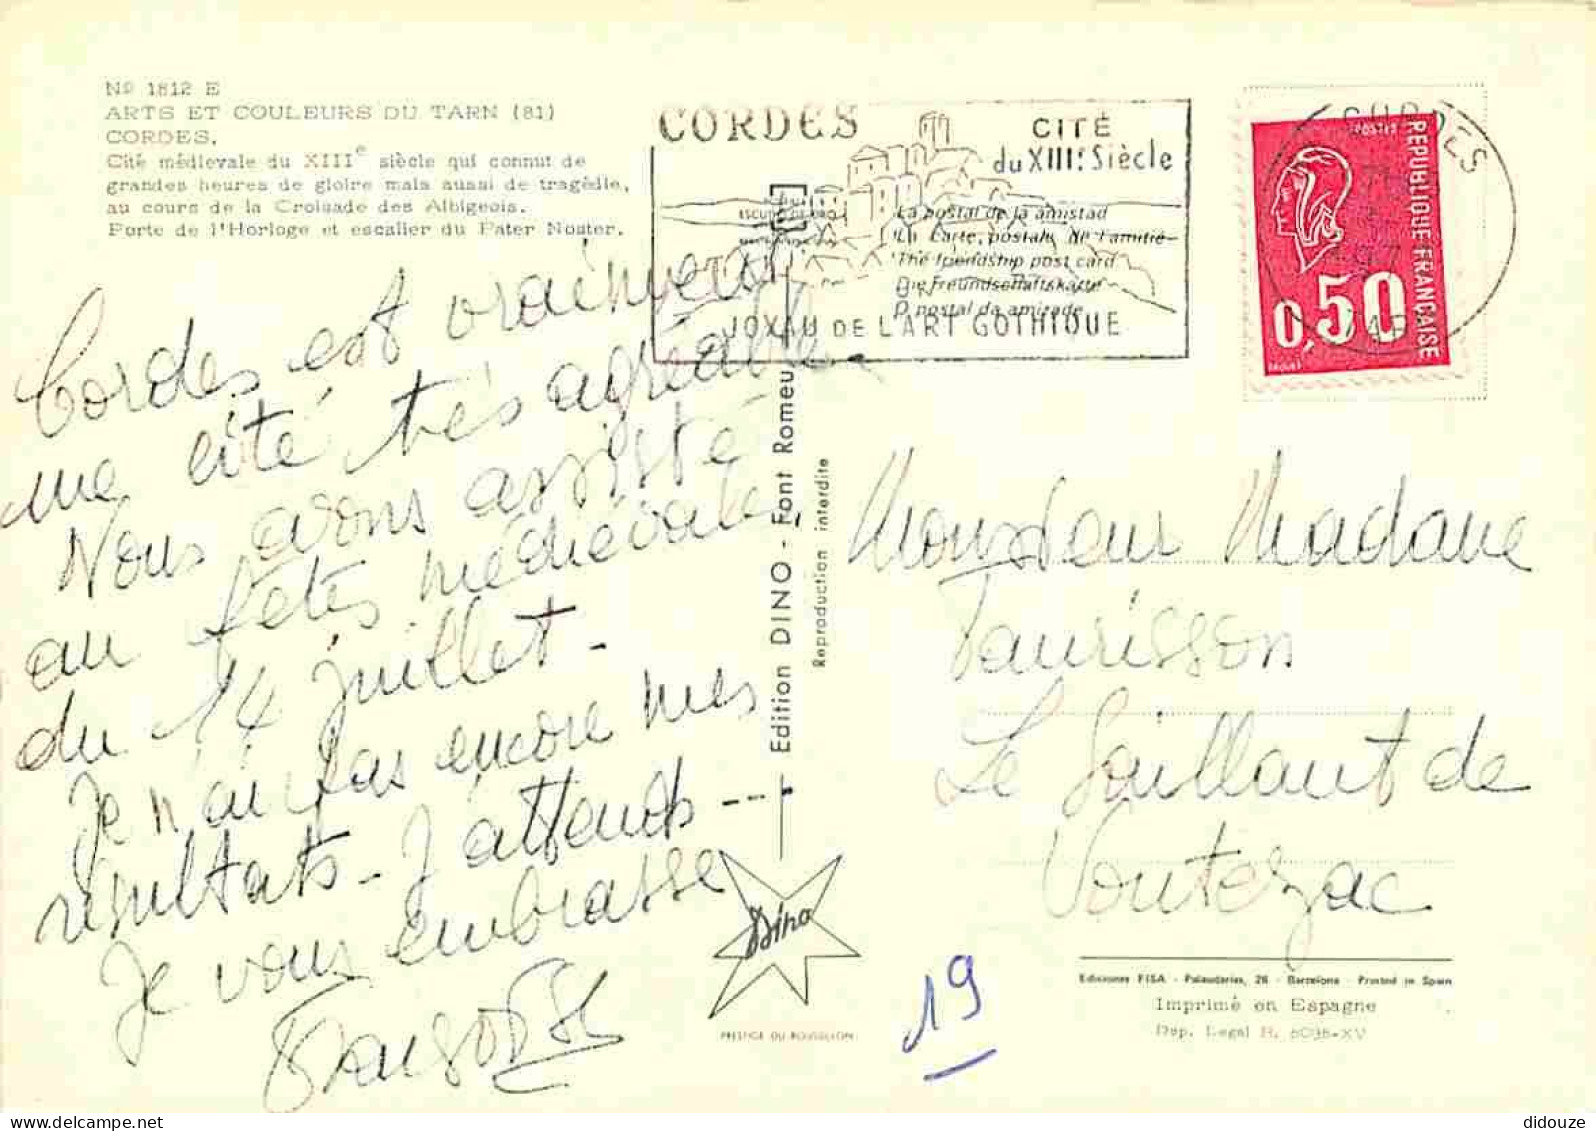 Nº 1812 E
ARTS ET COULEURS DU TARN (81)
CORDES.
Cité médievale du XIIIe siècle qui connut de
grandes heures de gloire mais aussi de tragédie,
au cours de la Croisade des Albigeois.
Porte de l'Horloge et escalier du Pater Noster.
CORDES
CITÉ
du XIIIe Siècle
La postal de la amistad
La Carte postale de l'amitié
The friendship post card
Die Freundschaftskarte
O postal da amizade
JOYAU DE L'ART GOTHIQUE
CORDES
TARN
POSTES
REPUBLIQUE FRANCAISE
0,50
Cordes est vraiment
une cité très agréable.
Nous avons assisté
au fêtes médiévales
du 14 juillet -
Je n'ai pas encore mes
résultats - J'attends ---
Je vous embrasse
Edition DINO - Font Romeu
Reproduction interdite
Dino
PRESTIGE DU ROUSSILLON
Monsieur Madame
Taurisson
Le Saillant de
Voutezac
19
Ediciones FISA - Palaudarias, 26 - Barcelona - Printed in Spain
Imprimé en Espagne
Dep. Legal B. 6036-XV
didouze